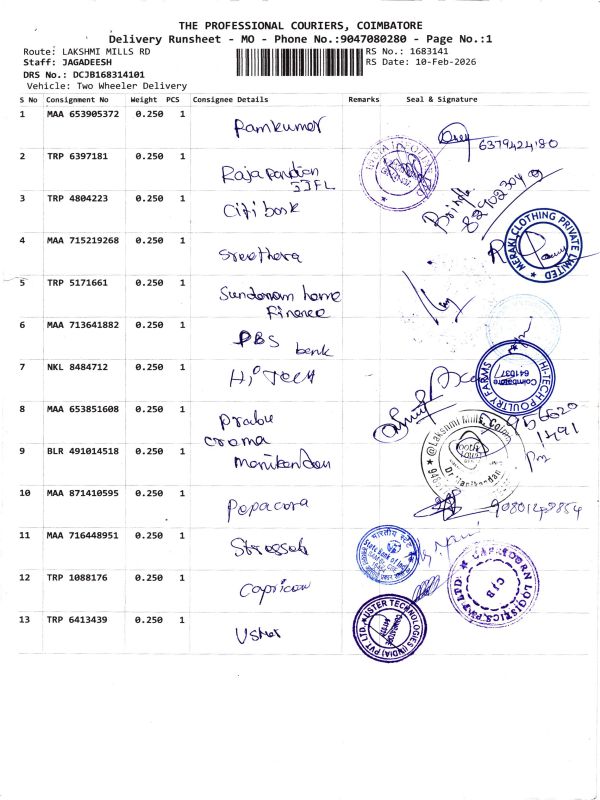 THE PROFESSIONAL COURIERS, COIMBATORE
Delivery Runsheet - MO - Phone No.:9047080280 - Page No.:1
Route: LAKSHMI MILLS RD
RS No.: 1683141
Staff: JAGADEESH
RS Date: 10-Feb-2026
DRS No.: DCJB168314101
Vehicle: Two Wheeler Delivery
S No Consignment No Weight PCS Consignee Details Remarks Seal & Signature
1 MAA 653905372 0.250 1 Ramkumar
6379424180
2 TRP 6397181 0.250 1 Rajapandian
JJFL
3 TRP 4804223 0.250 1 Citi bank
4 MAA 715219268 0.250 1 Sreethara
MERAKI CLOTHING PRIVATE LIMITED
5 TRP 5171661 0.250 1 Sundaram home
Finance
6 MAA 713641882 0.250 1 DBS
bank
7 NKL 8484712 0.250 1 Hi Tech
HI-TECH POULTRY FARMS
Coimbatore
641037
8 MAA 653851608 0.250 1 Prabu
croma
@Lakshmi Mills, Coim
9 BLR 491014518 0.250 1 Manikandan
Dr. Manikandan
10 MAA 871410595 0.250 1 Pepacora
11 MAA 716448951 0.250 1
भारतीय स्टेट बैंक
State Bank of India
12 TRP 1088176 0.250 1 Capricon
CAPRICORN LOGISTICS PVT LTD.
CJB
13 TRP 6413439 0.250 1 Uster
USTER TECHNOLOGIES (INDIA) PVT LTD.
COIMBATORE